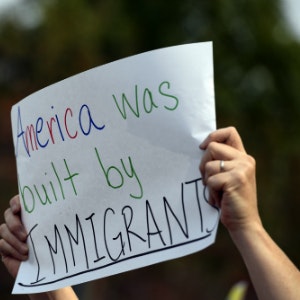 America was
built by
IMMIGRANTS